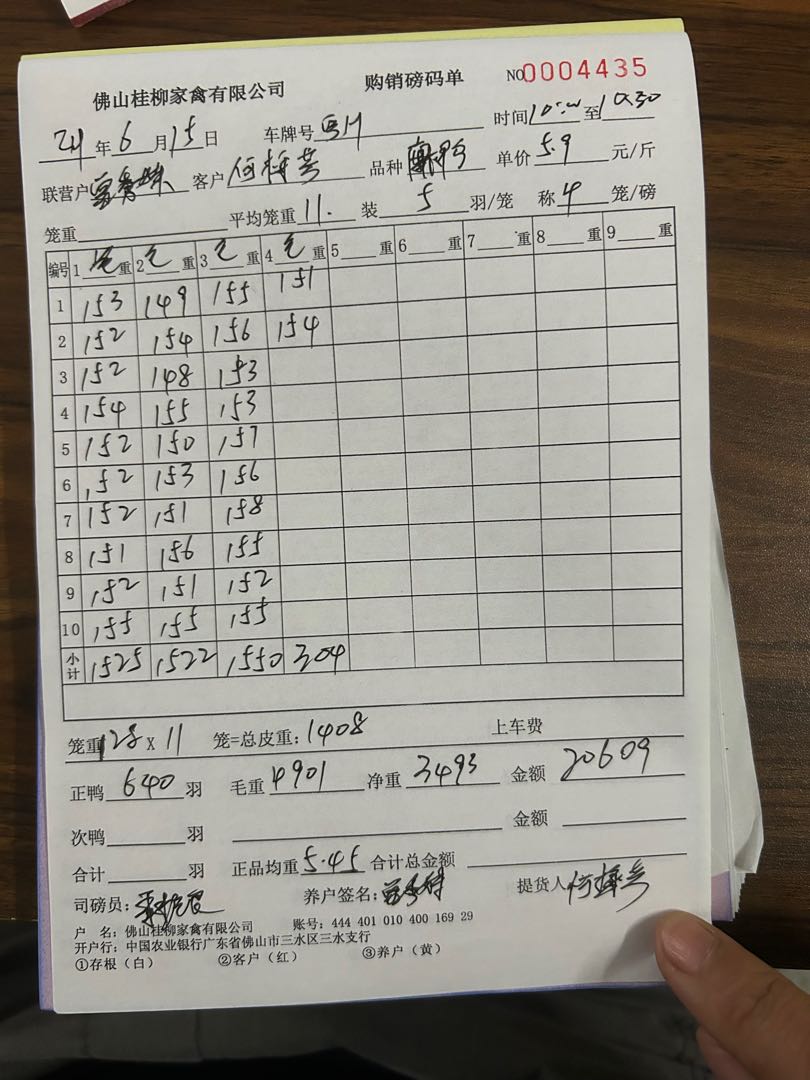 佛山桂柳家禽有限公司 购销磅码单 NO0004435
24年6月15日 车牌号 时间10:00至10:30
联营户 客户何梅芳 品种 单价5.9元/斤
笼重 平均笼重11. 装5羽/笼 称4笼/磅
编号 1毛重 2毛重 3毛重 4毛重 5重 6重 7重 8重 9重
1 153 149 155 151
2 152 154 156 154
3 152 148 153
4 154 155 153
5 152 150 157
6 152 153 156
7 152 151 158
8 151 156 155
9 152 151 152
10 155 155 155
小计 1525 1522 1550 304
笼重128X11 笼=总皮重:1408 上车费
正鸭640羽 毛重4901 净重3493 金额20609
次鸭 羽 金额
合计 羽 正品均重5.45 合计总金额
司磅员: 养户签名: 提货人
户 名:佛山桂柳家禽有限公司 账号:444 401 010 400 169 29
开户行:中国农业银行广东省佛山市三水区三水支行
①存根(白) ②客户(红) ③养户(黄)